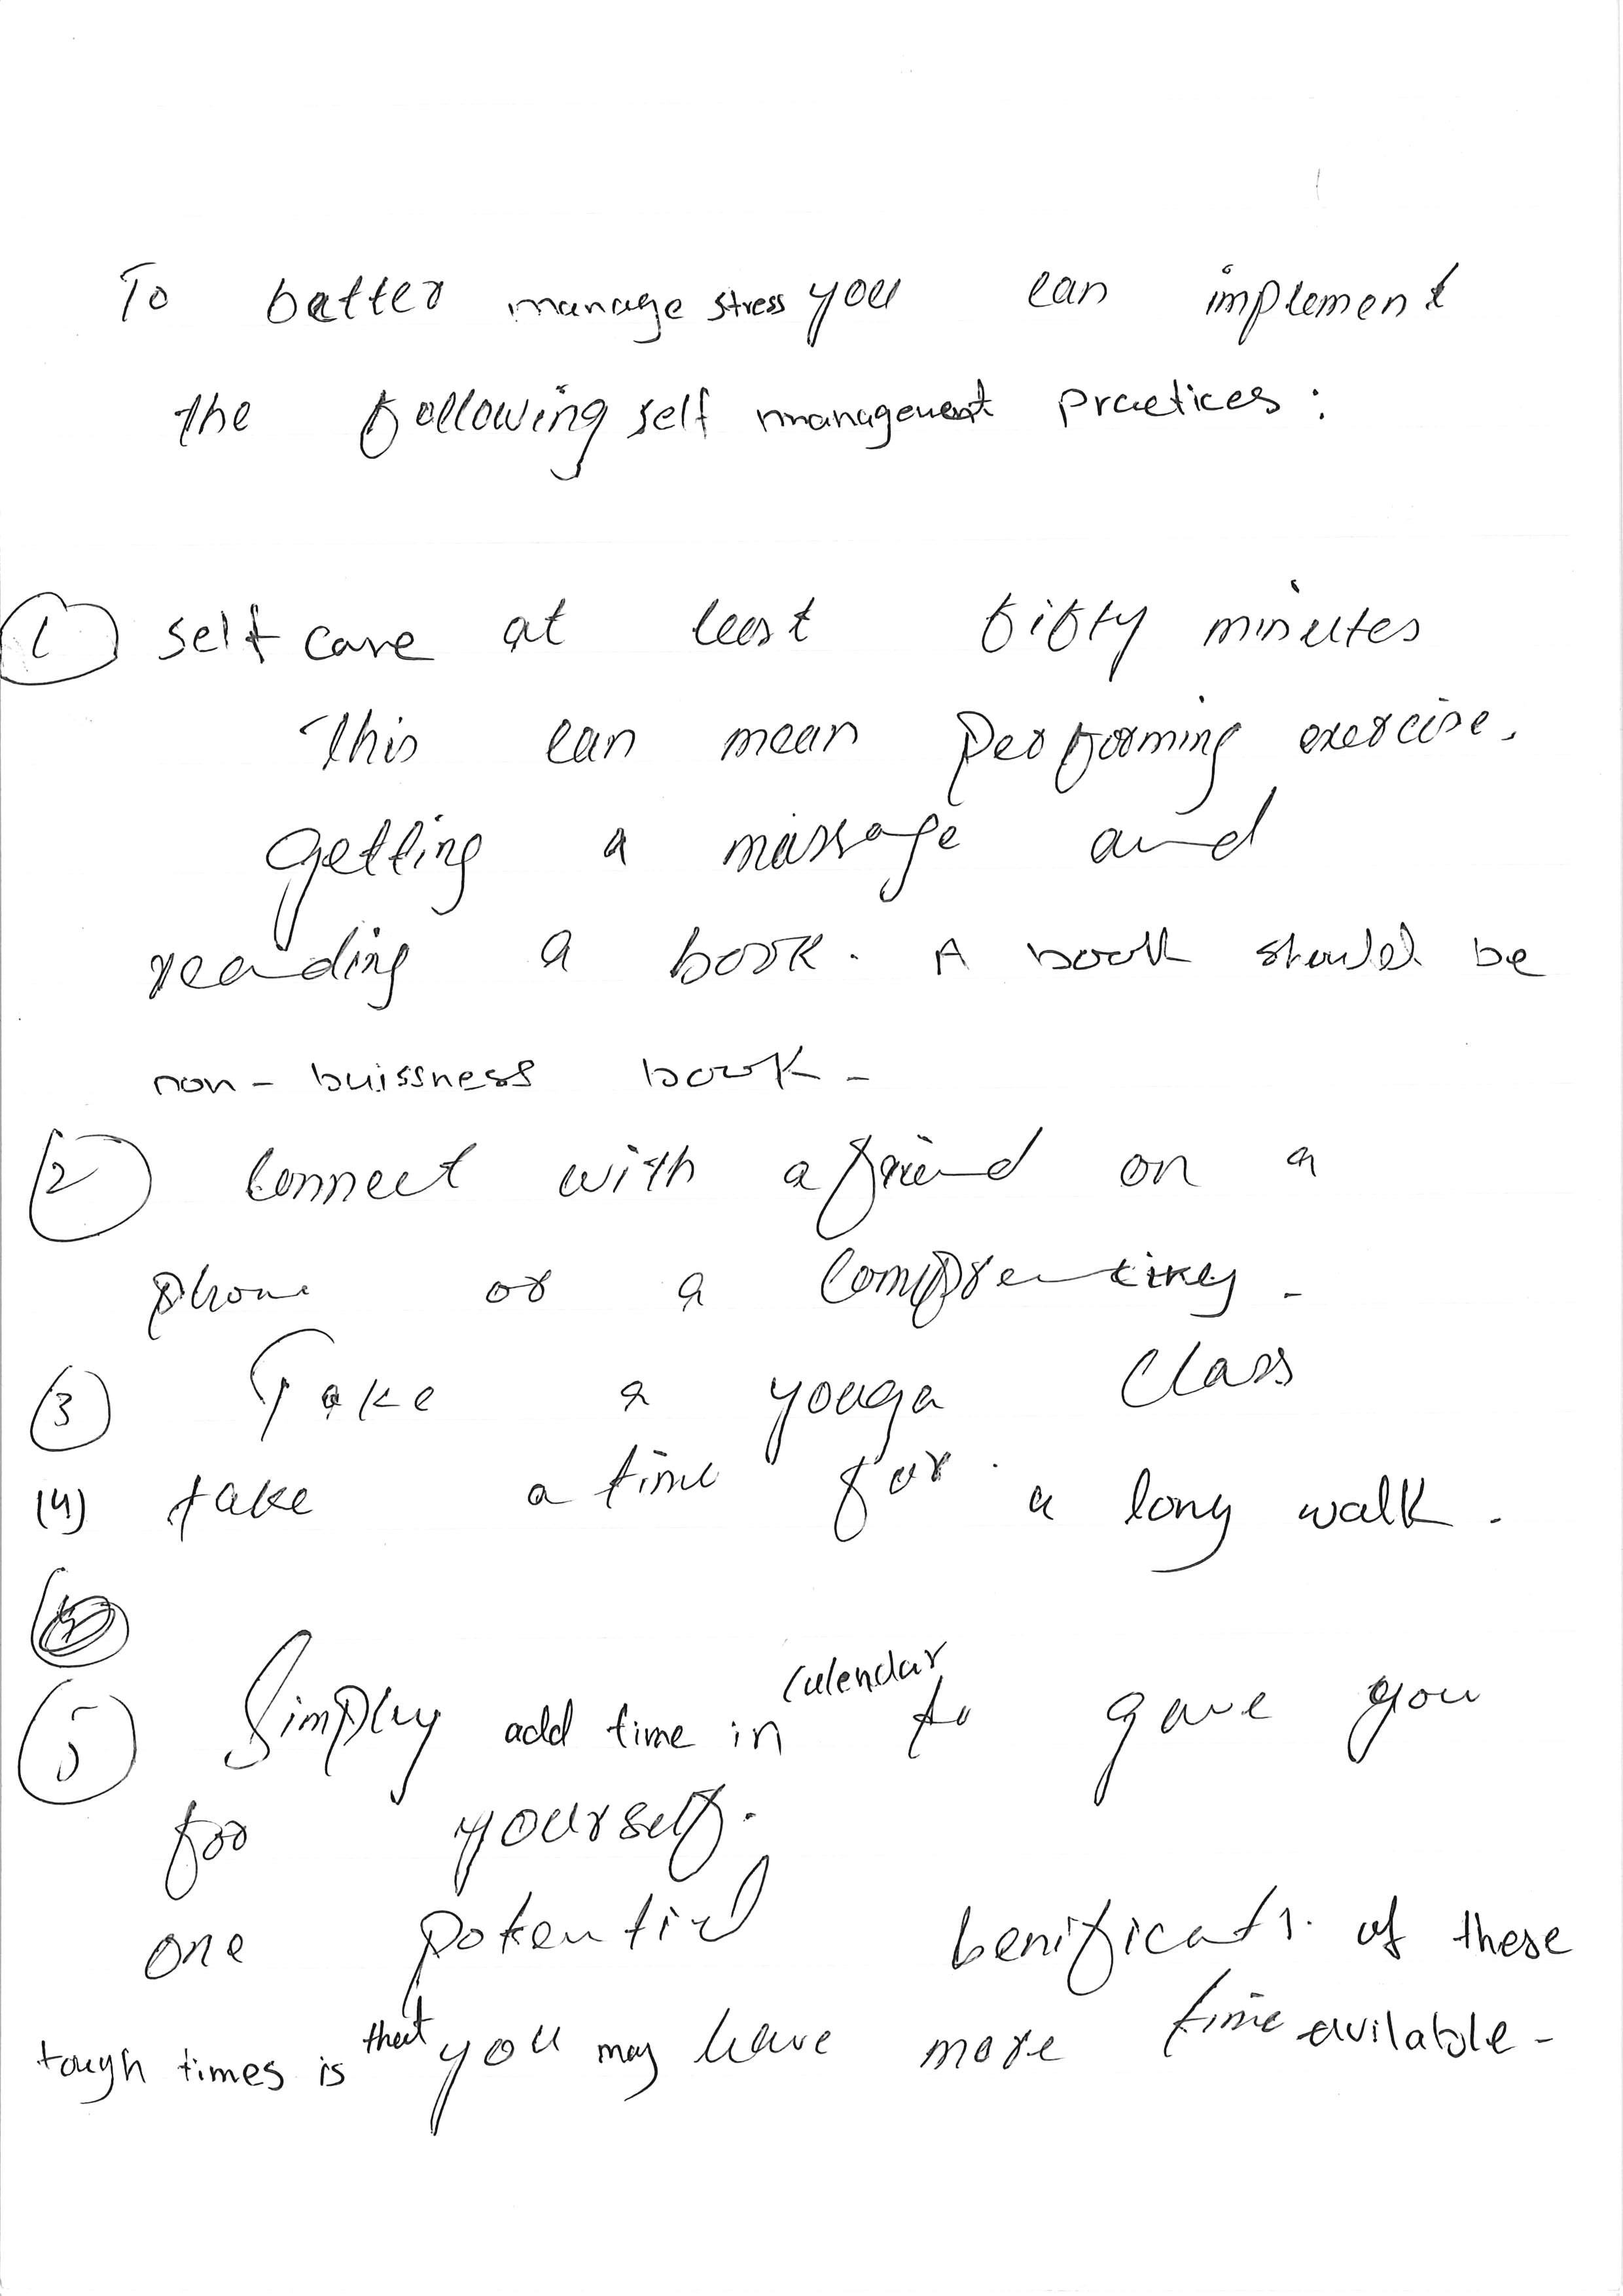 To better manage stress you can implement
the following self management practices :
1 self care at least fifty minutes
This can mean performing exercise.
getting a massage and
reading a book. A book should be
non - buissness book -
2 connect with a friend on a
phone or a
3 Take a youga class
(4) take a time for a long walk .
5 Simply add time in calendar to gave you
for yourself.
one potential of these
tough times is that you may have more time available -